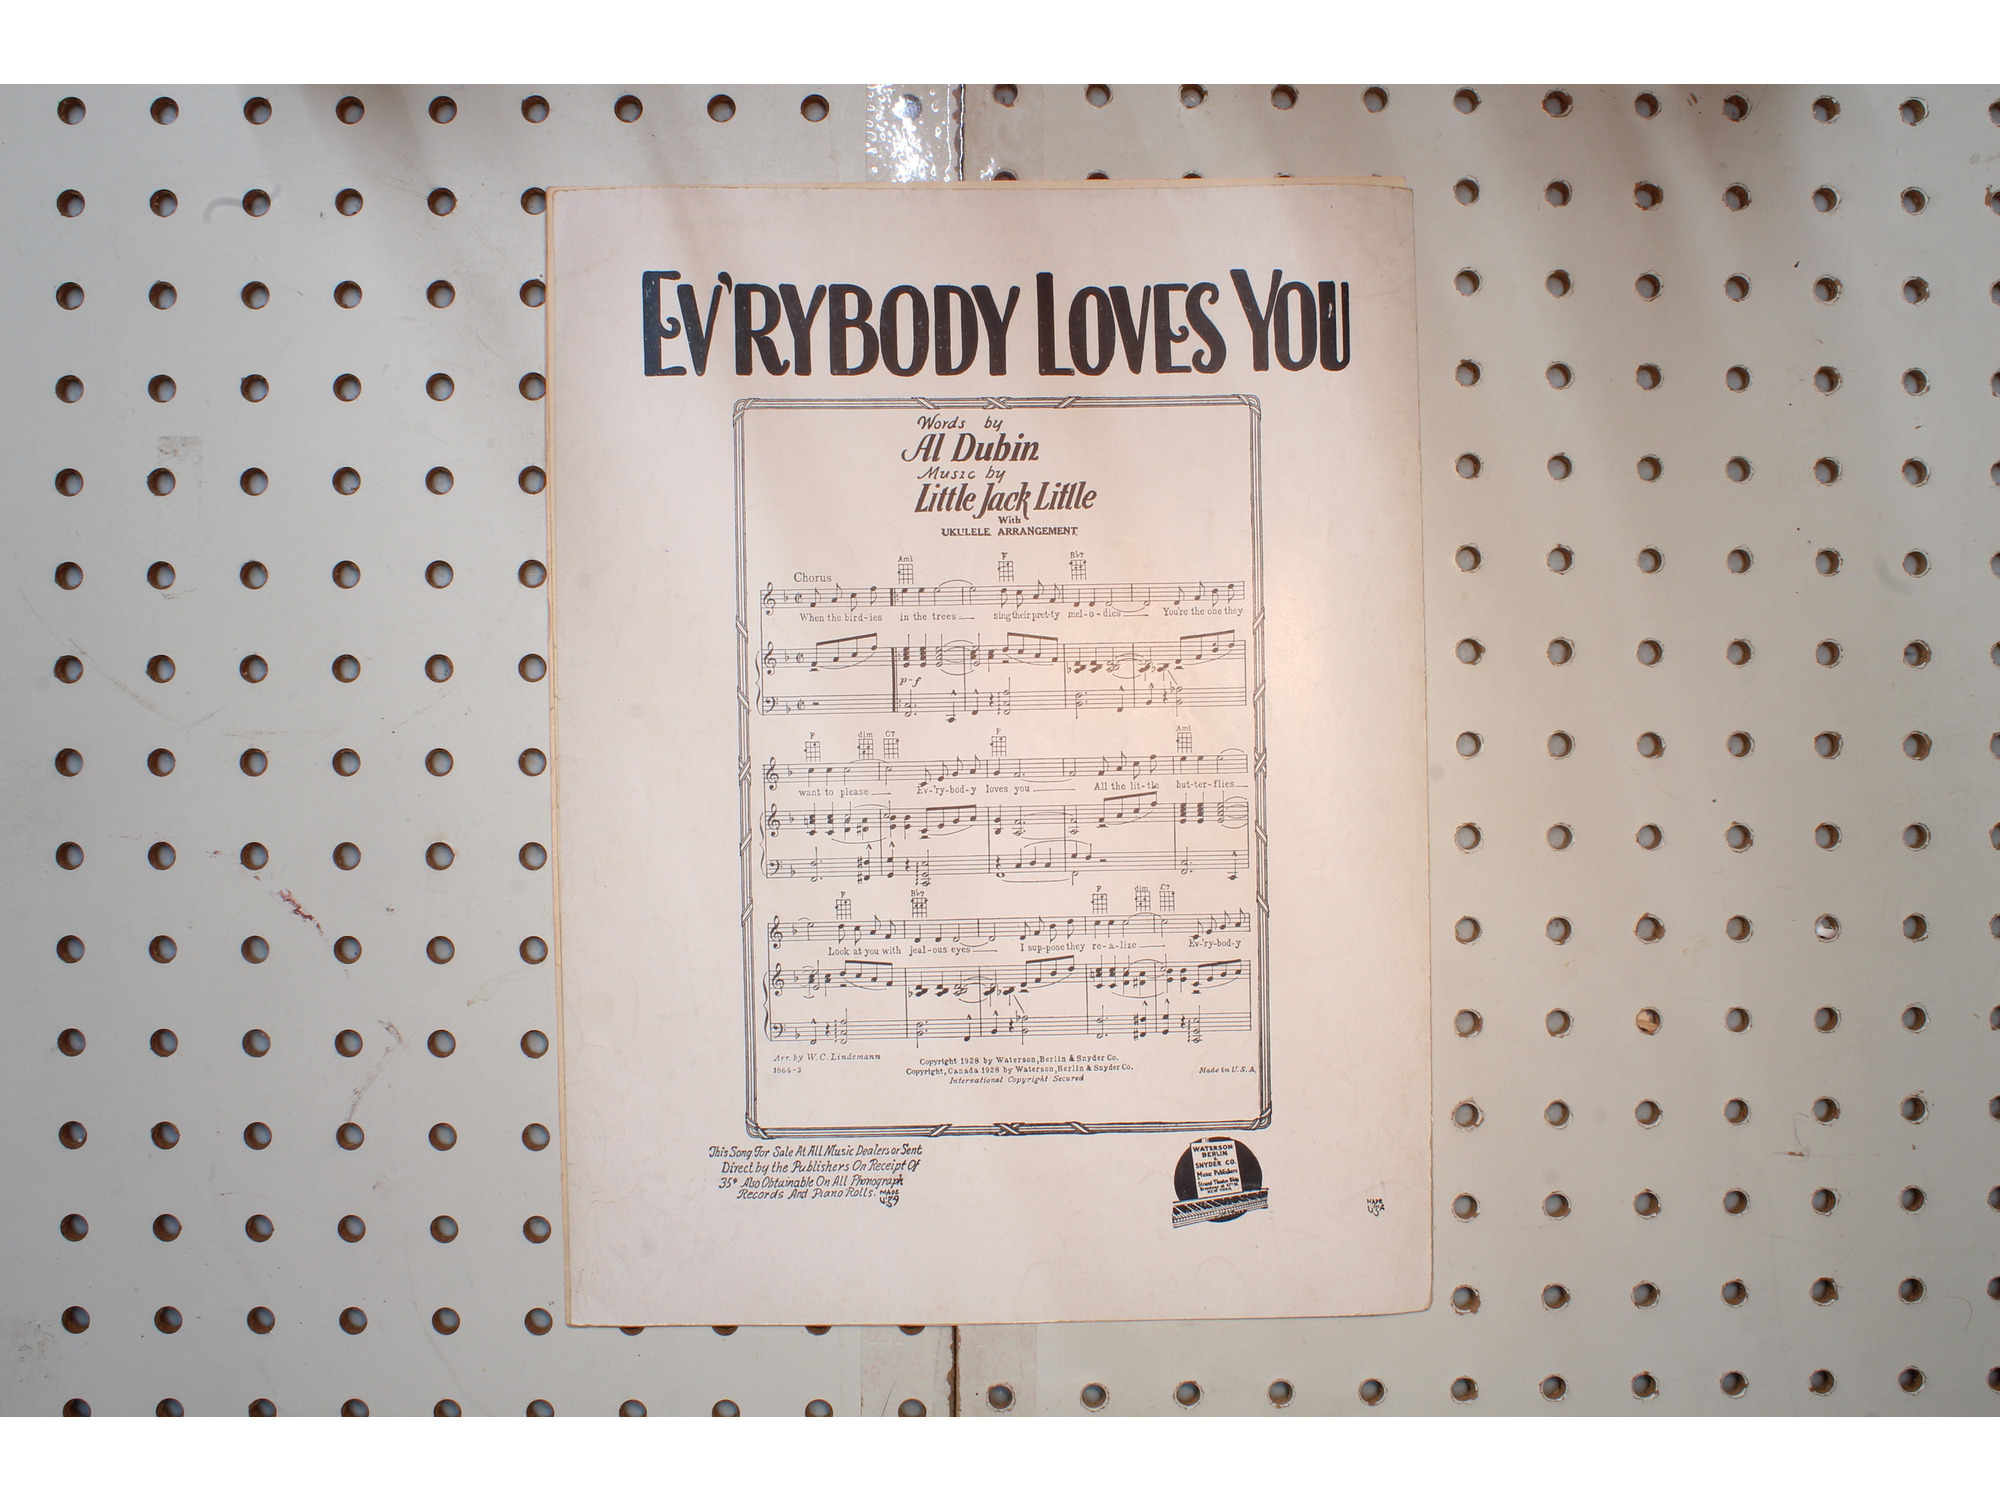 EV'RYBODY LOVES YOU
Words by
Al Dubin
Music by
Little Jack Little
With
UKULELE ARRANGEMENT
Ami F B♭7
Chorus
When the bird-ies in the trees sing their pret-ty mel-o-dies You're the one they
p-f
F dim C7 F Ami
want to please Ev-'ry-bod-y loves you All the lit-tle but-ter-flies
F B♭7 F dim C7
Look at you with jeal-ous eyes I sup-pose they re-a-lize Ev-'ry-bod-y
Arr. by W. C. Lindemann
1864-3
Copyright 1928 by Waterson, Berlin & Snyder Co.
Copyright, Canada 1928 by Waterson, Berlin & Snyder Co.
International Copyright Secured
Made in U. S. A.
This Song For Sale At All Music Dealers or Sent
Direct by the Publishers On Receipt Of
35¢ Also Obtainable On All Phonograph
Records And Piano Rolls. MADE IN USA
WATERSON
BERLIN
&
SNYDER CO.
Music Publishers
Strand Theatre Bldg.
NEW YORK
MADE
IN
USA